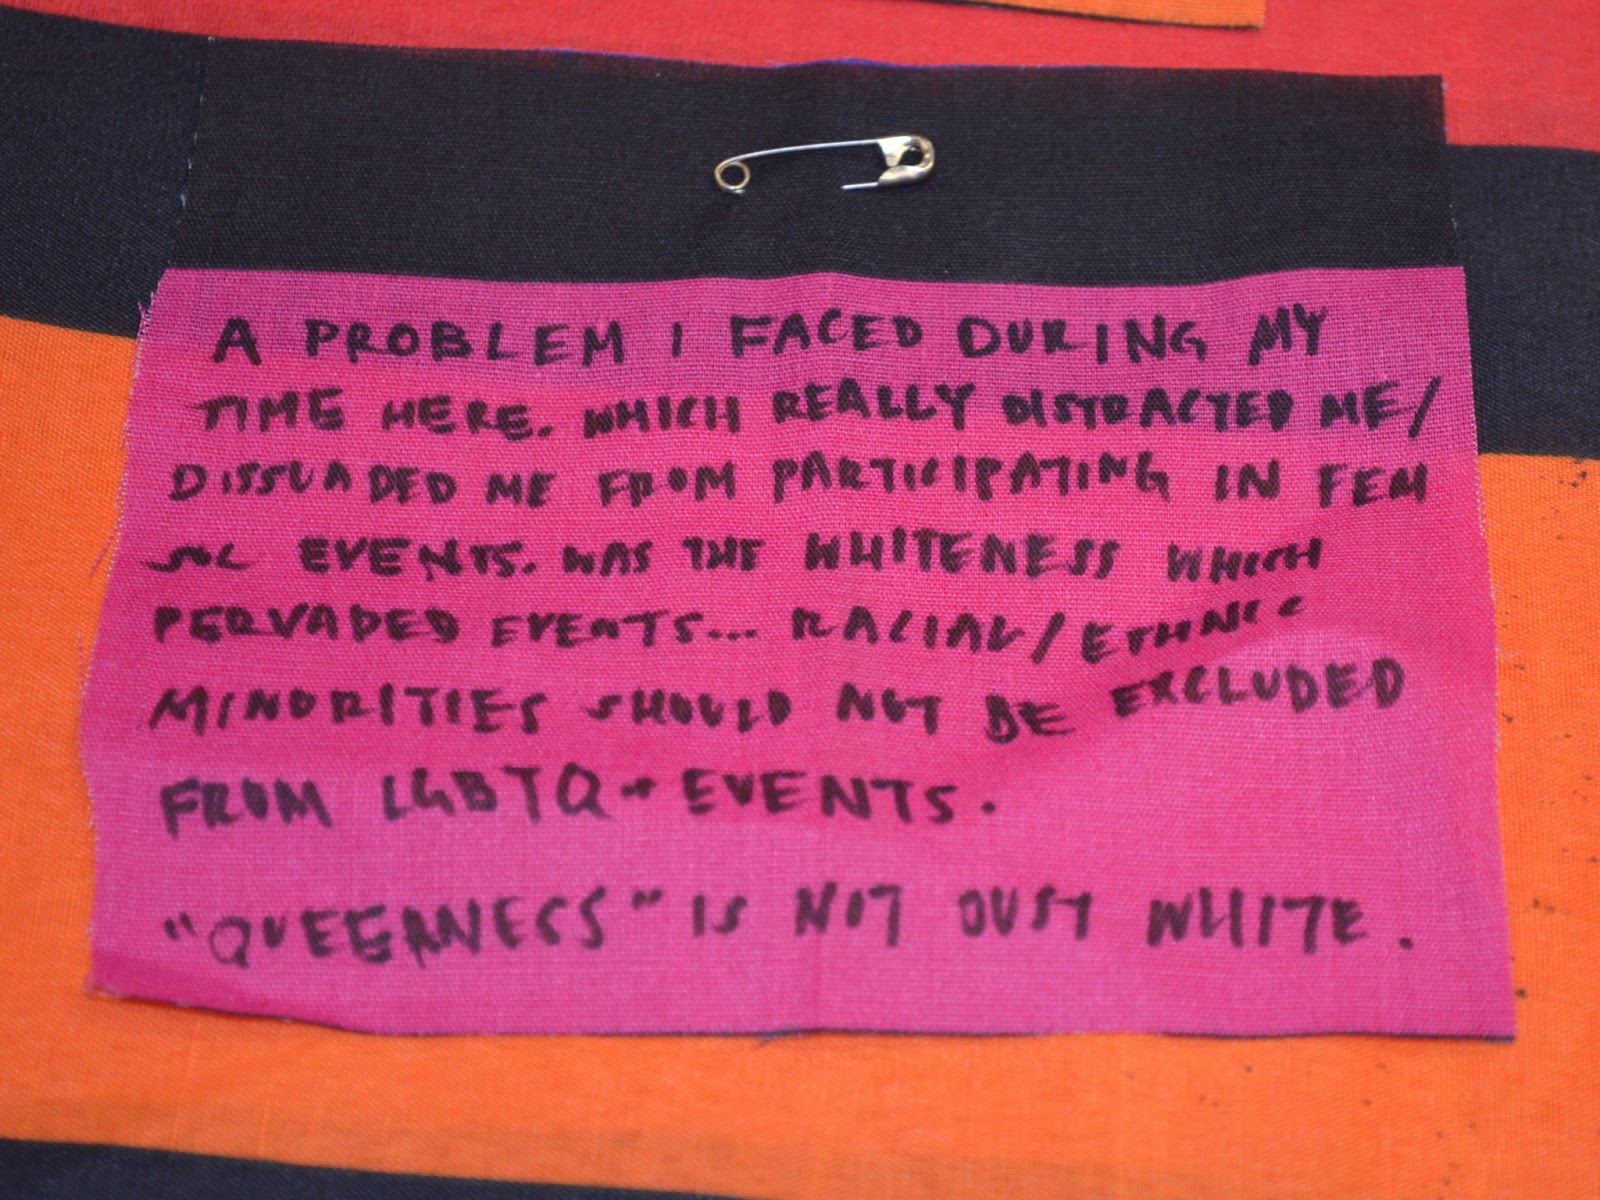 A PROBLEM I FACED DURING MY
TIME HERE. WHICH REALLY DISTRACTED ME/
DISSUADED ME FROM PARTICIPATING IN FEM
SOC EVENTS. WAS THE WHITENESS WHICH
PERVADED EVENTS... RACIAL/ETHNIC
MINORITIES SHOULD NOT BE EXCLUDED
FROM LGBTQ+ EVENTS.
"QUEERNESS" IS NOT JUST WHITE.